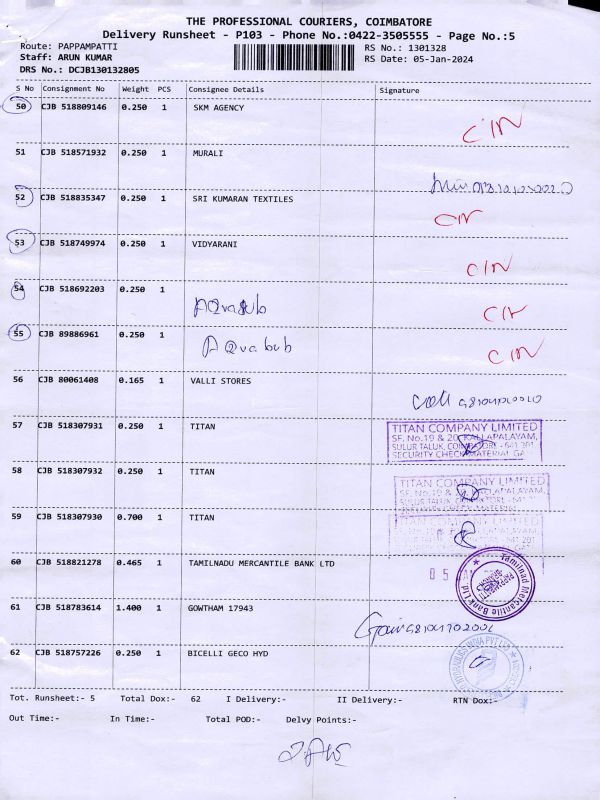 THE PROFESSIONAL COURIERS, COIMBATORE
Delivery Runsheet - P103 - Phone No.:0422-3505555 - Page No.:5
Route: PAPPAMPATTI RS No.: 1301328
Staff: ARUN KUMAR RS Date: 05-Jan-2024
DRS No.: DCJB130132805
S No Consignment No Weight PCS Consignee Details Signature
50 CJB 518809146 0.250 1 SKM AGENCY
51 CJB 518571932 0.250 1 MURALI
52 CJB 518835347 0.250 1 SRI KUMARAN TEXTILES
53 CJB 518749974 0.250 1 VIDYARANI
54 CJB 518692203 0.250 1
55 CJB 89886961 0.250 1
56 CJB 80061408 0.165 1 VALLI STORES
57 CJB 518307931 0.250 1 TITAN
TITAN COMPANY LIMITED
SF. No.19 & 20, KALLAPALAYAM,
SULUR TALUK, COIMBATORE - 641 201
SECURITY CHECK MATERIAL GA
58 CJB 518307932 0.250 1 TITAN
TITAN COMPANY LIMITED
59 CJB 518307930 0.700 1 TITAN
TITAN COMPANY LIMITED
60 CJB 518821278 0.465 1 TAMILNADU MERCANTILE BANK LTD
05
Tamilnad Mercantile Bank Ltd
61 CJB 518783614 1.400 1 GOWTHAM 17943
62 CJB 518757226 0.250 1 BICELLI GECO HYD
Tot. Runsheet:- 5 Total Dox:- 62 I Delivery:- II Delivery:- RTN Dox:-
Out Time:- In Time:- Total POD:- Delvy Points:-